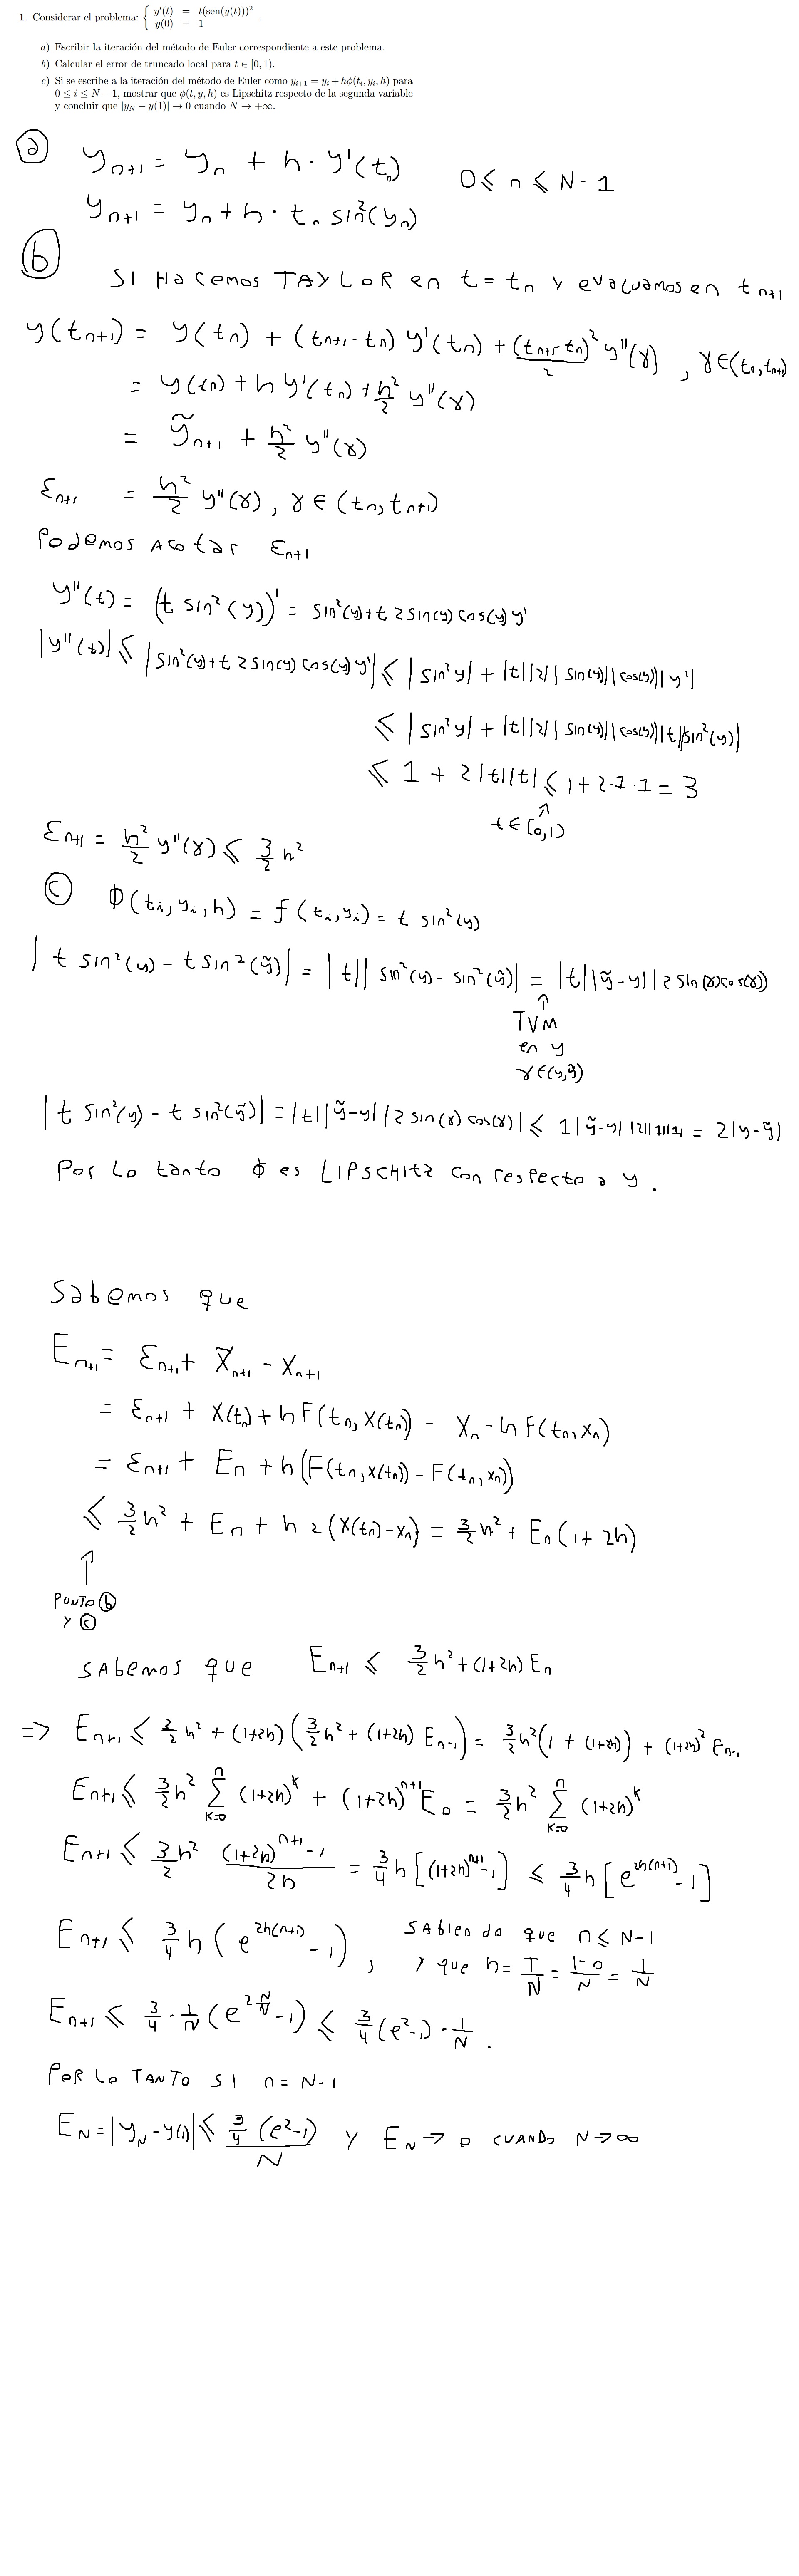 1. Considerar el problema: { y'(t) = t(sen(y(t)))²
y(0) = 1 .
a) Escribir la iteración del método de Euler correspondiente a este problema.
b) Calcular el error de truncado local para t ∈ [0, 1).
c) Si se escribe a la iteración del método de Euler como y_{i+1} = y_i + hϕ(t_i, y_i, h) para
0 ≤ i ≤ N − 1, mostrar que ϕ(t, y, h) es Lipschitz respecto de la segunda variable
y concluir que |y_N − y(1)| → 0 cuando N → +∞.
a y_{n+1} = y_n + h · y'(t_n) 0 ≤ n ≤ N - 1
y_{n+1} = y_n + h · t_n sin²(y_n)
b
SI HACEMOS TAYLOR en t = t_n y evaluamos en t_{n+1}
y(t_{n+1}) = y(t_n) + (t_{n+1} - t_n) y'(t_n) + (t_{n+1} - t_n)²/2 y''(γ), γ∈(t_n, t_{n+1})
= y(t_n) + h y'(t_n) + h²/2 y''(γ)
= ỹ_{n+1} + h²/2 y''(γ)
ε_{n+1} = h²/2 y''(γ), γ ∈ (t_n, t_{n+1})
Podemos Acotar ε_{n+1}
y''(t) = (t sin²(y))' = sin²(y) + t 2 sin(y) cos(y) y'
|y''(t)| ≤ |sin²(y) + t 2 sin(y) cos(y) y'| ≤ |sin²y| + |t||2||sin(y)||cos(y)||y'|
≤ |sin²y| + |t||2||sin(y)||cos(y)||t||sin²(y)|
≤ 1 + 2|t||t| ≤ 1 + 2·1·1 = 3
↑
t ∈ [0,1)
ε_{n+1} = h²/2 y''(γ) ≤ 3/2 h²
c ϕ(t_i, y_i, h) = f(t_i, y_i) = t sin²(y)
|t sin²(y) - t sin²(ỹ)| = |t||sin²(y) - sin²(ỹ)| = |t||ỹ - y||2 sin(γ)cos(γ)|
↑
TVM
en y
γ∈(y,ỹ)
|t sin²(y) - t sin²(ỹ)| = |t||ỹ - y||2 sin(γ) cos(γ)| ≤ 1|ỹ - y||2||1||1| = 2|y - ỹ|
Por Lo tanto ϕ es LIPSCHITZ con respecto a y.
Sabemos que
E_{n+1} = ε_{n+1} + x̃_{n+1} - x_{n+1}
= ε_{n+1} + x(t_n) + h F(t_n, x(t_n)) - x_n - h F(t_n, x_n)
= ε_{n+1} + E_n + h (F(t_n, x(t_n)) - F(t_n, x_n))
≤ 3/2 h² + E_n + h 2 (x(t_n) - x_n) = 3/2 h² + E_n (1 + 2h)
↑
PUNTO b
Y c
SABEMOS que E_{n+1} ≤ 3/2 h² + (1+2h) E_n
=> E_{n+1} ≤ 3/2 h² + (1+2h) (3/2 h² + (1+2h) E_{n-1}) = 3/2 h² (1 + (1+2h)) + (1+2h)² E_{n-1}
E_{n+1} ≤ 3/2 h² Σ_{K=0}^{n} (1+2h)^K + (1+2h)^{n+1} E_0 = 3/2 h² Σ_{K=0}^{n} (1+2h)^K
E_{n+1} ≤ 3/2 h² ((1+2h)^{n+1} - 1)/2h = 3/4 h [(1+2h)^{n+1} - 1] ≤ 3/4 h [e^{2h(n+1)} - 1]
E_{n+1} ≤ 3/4 h (e^{2h(n+1)} - 1), SABIENDO que n ≤ N-1
Y que h = T/N = 1-0/N = 1/N
E_{n+1} ≤ 3/4 · 1/N (e^{2 N/N} - 1) ≤ 3/4 (e² - 1) · 1/N.
POR LO TANTO SI n = N-1
E_N = |y_N - y(1)| ≤ 3/4 (e² - 1)/N Y E_N → 0 CUANDO N → ∞